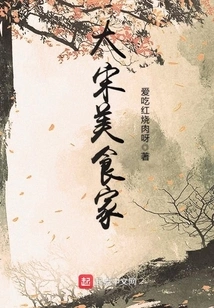 太宋美食家
爱吃红烧肉呀◎著
起
中文网